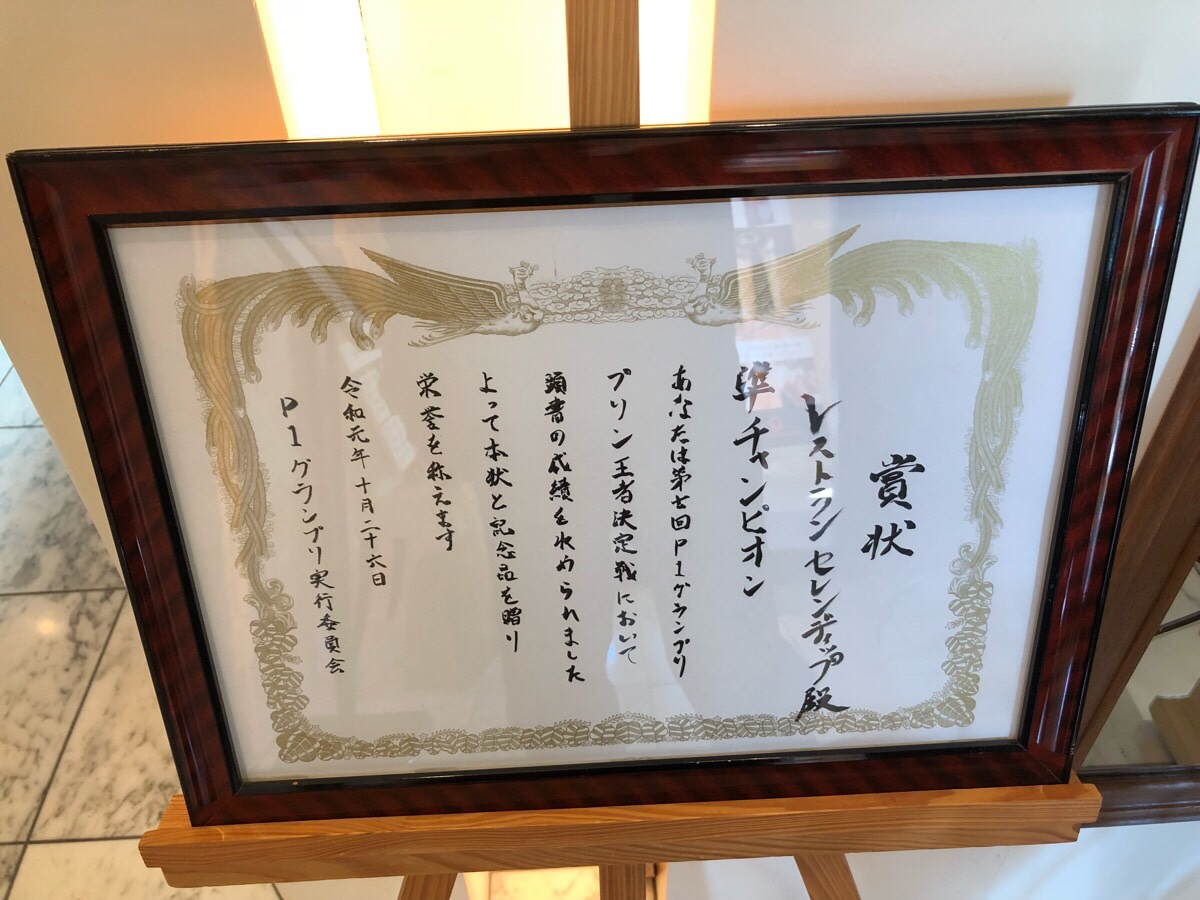 賞状
レストランセレンディップ殿
準チャンピオン
あなたは第七回P1グランプリ
プリン王者決定戦において
頭書の成績を収められました
よって本状と記念品を贈り
栄誉を称えます
令和元年十月二十六日
P1グランプリ実行委員会